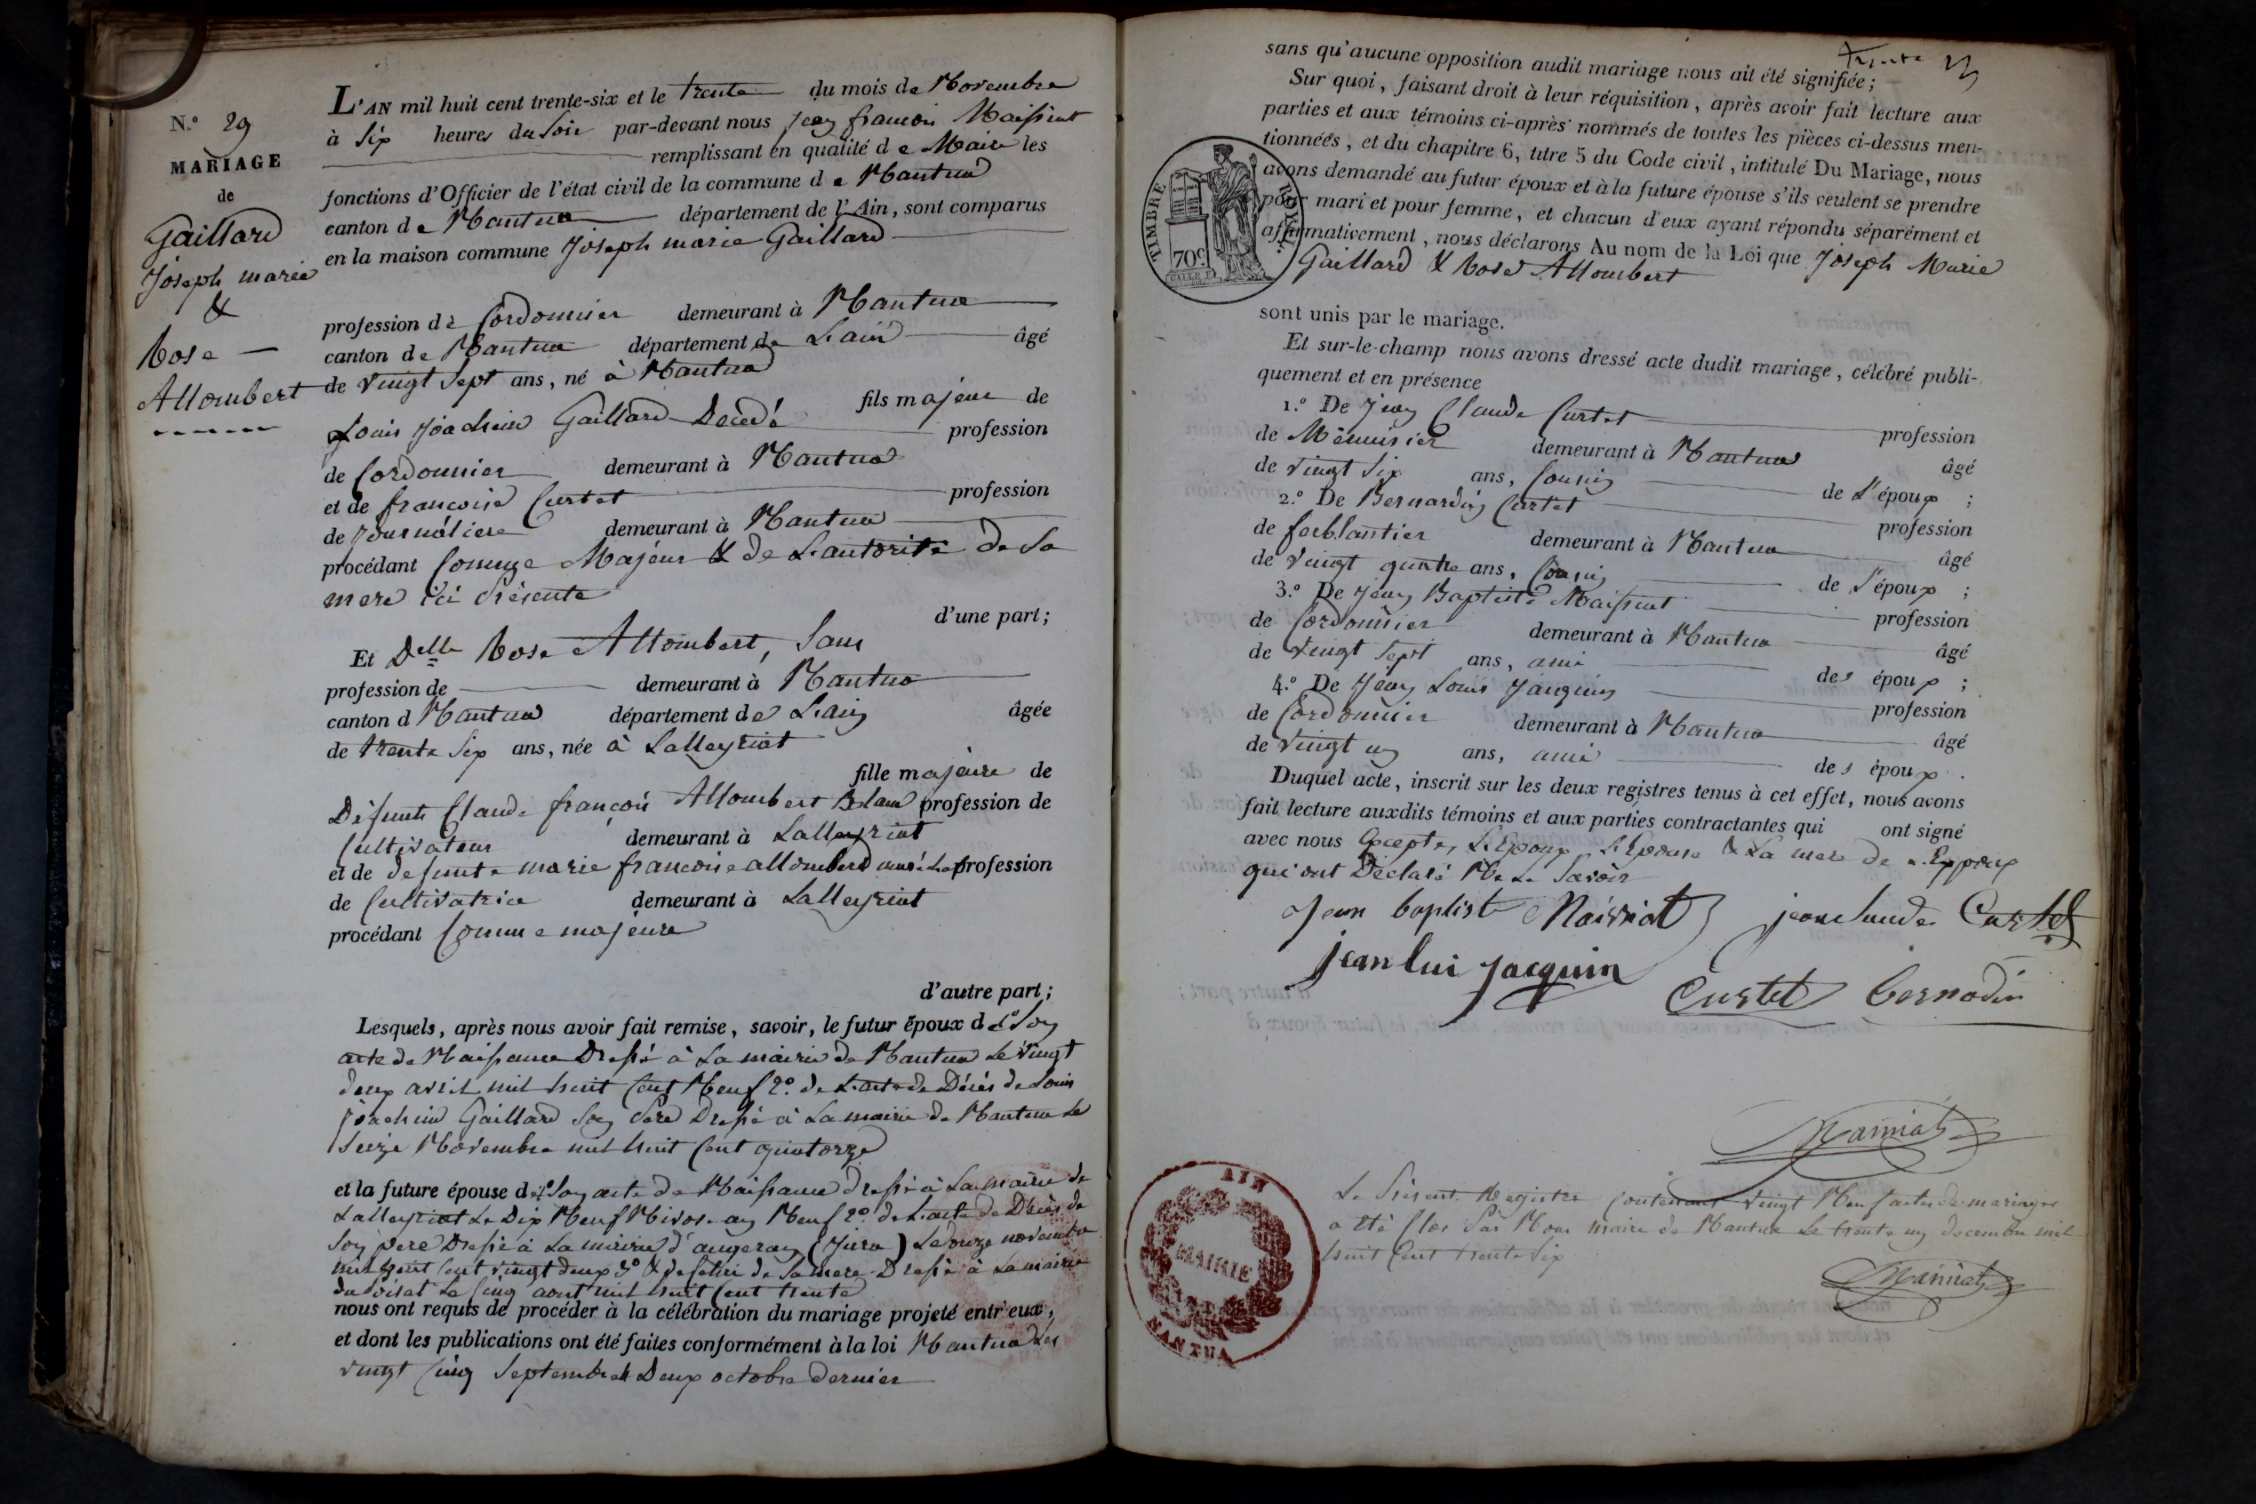 N.º 29
MARIAGE
de
Gaillard
Joseph marie
&
Rose —
Allombert
L'AN mil huit cent trente-six et le trente du mois de Novembre
à Six heures du Soir par-devant nous jean francois Maissiat
remplissant en qualité de Maire les
fonctions d'Officier de l'état civil de la commune de Nantua
canton de Nantua département de l'Ain, sont comparus
en la maison commune Joseph marie Gaillard
profession de Cordonnier demeurant à Nantua
canton de Nantua département de L'ain âgé
de vingt Sept ans, né à Nantua
fils majeur de
Louis Joachim Gaillard Decedé profession
de Cordonnier demeurant à Nantua
et de francoise Curtet profession
de Journaliere demeurant à Nantua
procédant Comme Majeur & de L'autorité de Sa
mere ici présente
d'une part;
Et Delle Rose Allombert, Sans
profession de demeurant à Nantua
canton d Nantua département de L'ain âgée
de trente Six ans, née à Lalleyriat
fille majeure de
Défunt Claude françois Allombert Blanc profession de
Cultivateur demeurant à Lalleyriat
et de defunte marie francoise allombert profession
de Cultivatrice demeurant à Lalleyriat
procédant Comme majeure
d'autre part;
Lesquels, après nous avoir fait remise, savoir, le futur époux de 1º Son
acte de Naissance Dressé à La mairie de Nantua Le Vingt
deux avril mil huit Cent Neuf 2º. de L'acte de Décès de Louis
Joachim Gaillard Son Père Dressé à La mairie de Nantua Le
Seize Novembre mil huit Cent quatorze
et la future épouse de 1º Son acte de Naissance dressé à La mairie de
Lalleyriat Le Dix Neuf Nivose an Neuf 2º. de L'acte de Décès de
Son pere Dressé à La mairie d'augeran (Jura) Le onze novembre
mil huit Cent vingt deux 3º & de Celui de Sa mere Dressé à La mairie
du Poisat Le Cinq aout mil huit Cent trente
nous ont requis de procéder à la célébration du mariage projeté entr'eux,
et dont les publications ont été faites conformément à la loi Nantua Les
vingt Cinq Septembre & Deux octobre dernier
trente
sans qu'aucune opposition audit mariage nous ait été signifiée;
Sur quoi, faisant droit à leur réquisition, après avoir fait lecture aux
parties et aux témoins ci-après nommés de toutes les pièces ci-dessus men-
tionnées, et du chapitre 6, titre 5 du Code civil, intitulé Du Mariage, nous
avons demandé au futur époux et à la future épouse s'ils veulent se prendre
pour mari et pour femme, et chacun d'eux ayant répondu séparément et
affirmativement, nous déclarons Au nom de la Loi que Joseph Marie
Gaillard & Rose Allombert
TIMBRE ROYAL
70c
sont unis par le mariage.
Et sur-le-champ nous avons dressé acte dudit mariage, célébré publi-
quement et en présence
1.º De Jean Claude Curtet profession
de Menuisier demeurant à Nantua âgé
de vingt Six ans, Cousin de L'époux ;
2.º De Bernardin Curtet profession
de ferblantier demeurant à Nantua âgé
de vingt quatre ans, Cousin de L'époux ;
3.º De Jean Baptiste Maissiat profession
de Cordonnier demeurant à Nantua âgé
de vingt Sept ans, ami des époux ;
4.º De Jean Louis Jacquin profession
de Cordonnier demeurant à Nantua âgé
de vingt un ans, ami des époux.
Duquel acte, inscrit sur les deux registres tenus à cet effet, nous avons
fait lecture auxdits témoins et aux parties contractantes qui ont signé
avec nous Excepté, L'Epoux L'Epouse & La mere de L'Epoux
qui ont Déclaré Ne Le Savoir
Jean baptiste Mairiat jean claude Curtet
jean lui jacquin
Curtet bernadin
Maissiat
Le Présent Registre Contenant Vingt Neuf actes de mariages
a été Clos Par Nous maire de Nantua Le trente un decembre mil
huit Cent trente Six
Maissiat
AIN
MAIRIE
NANTUA